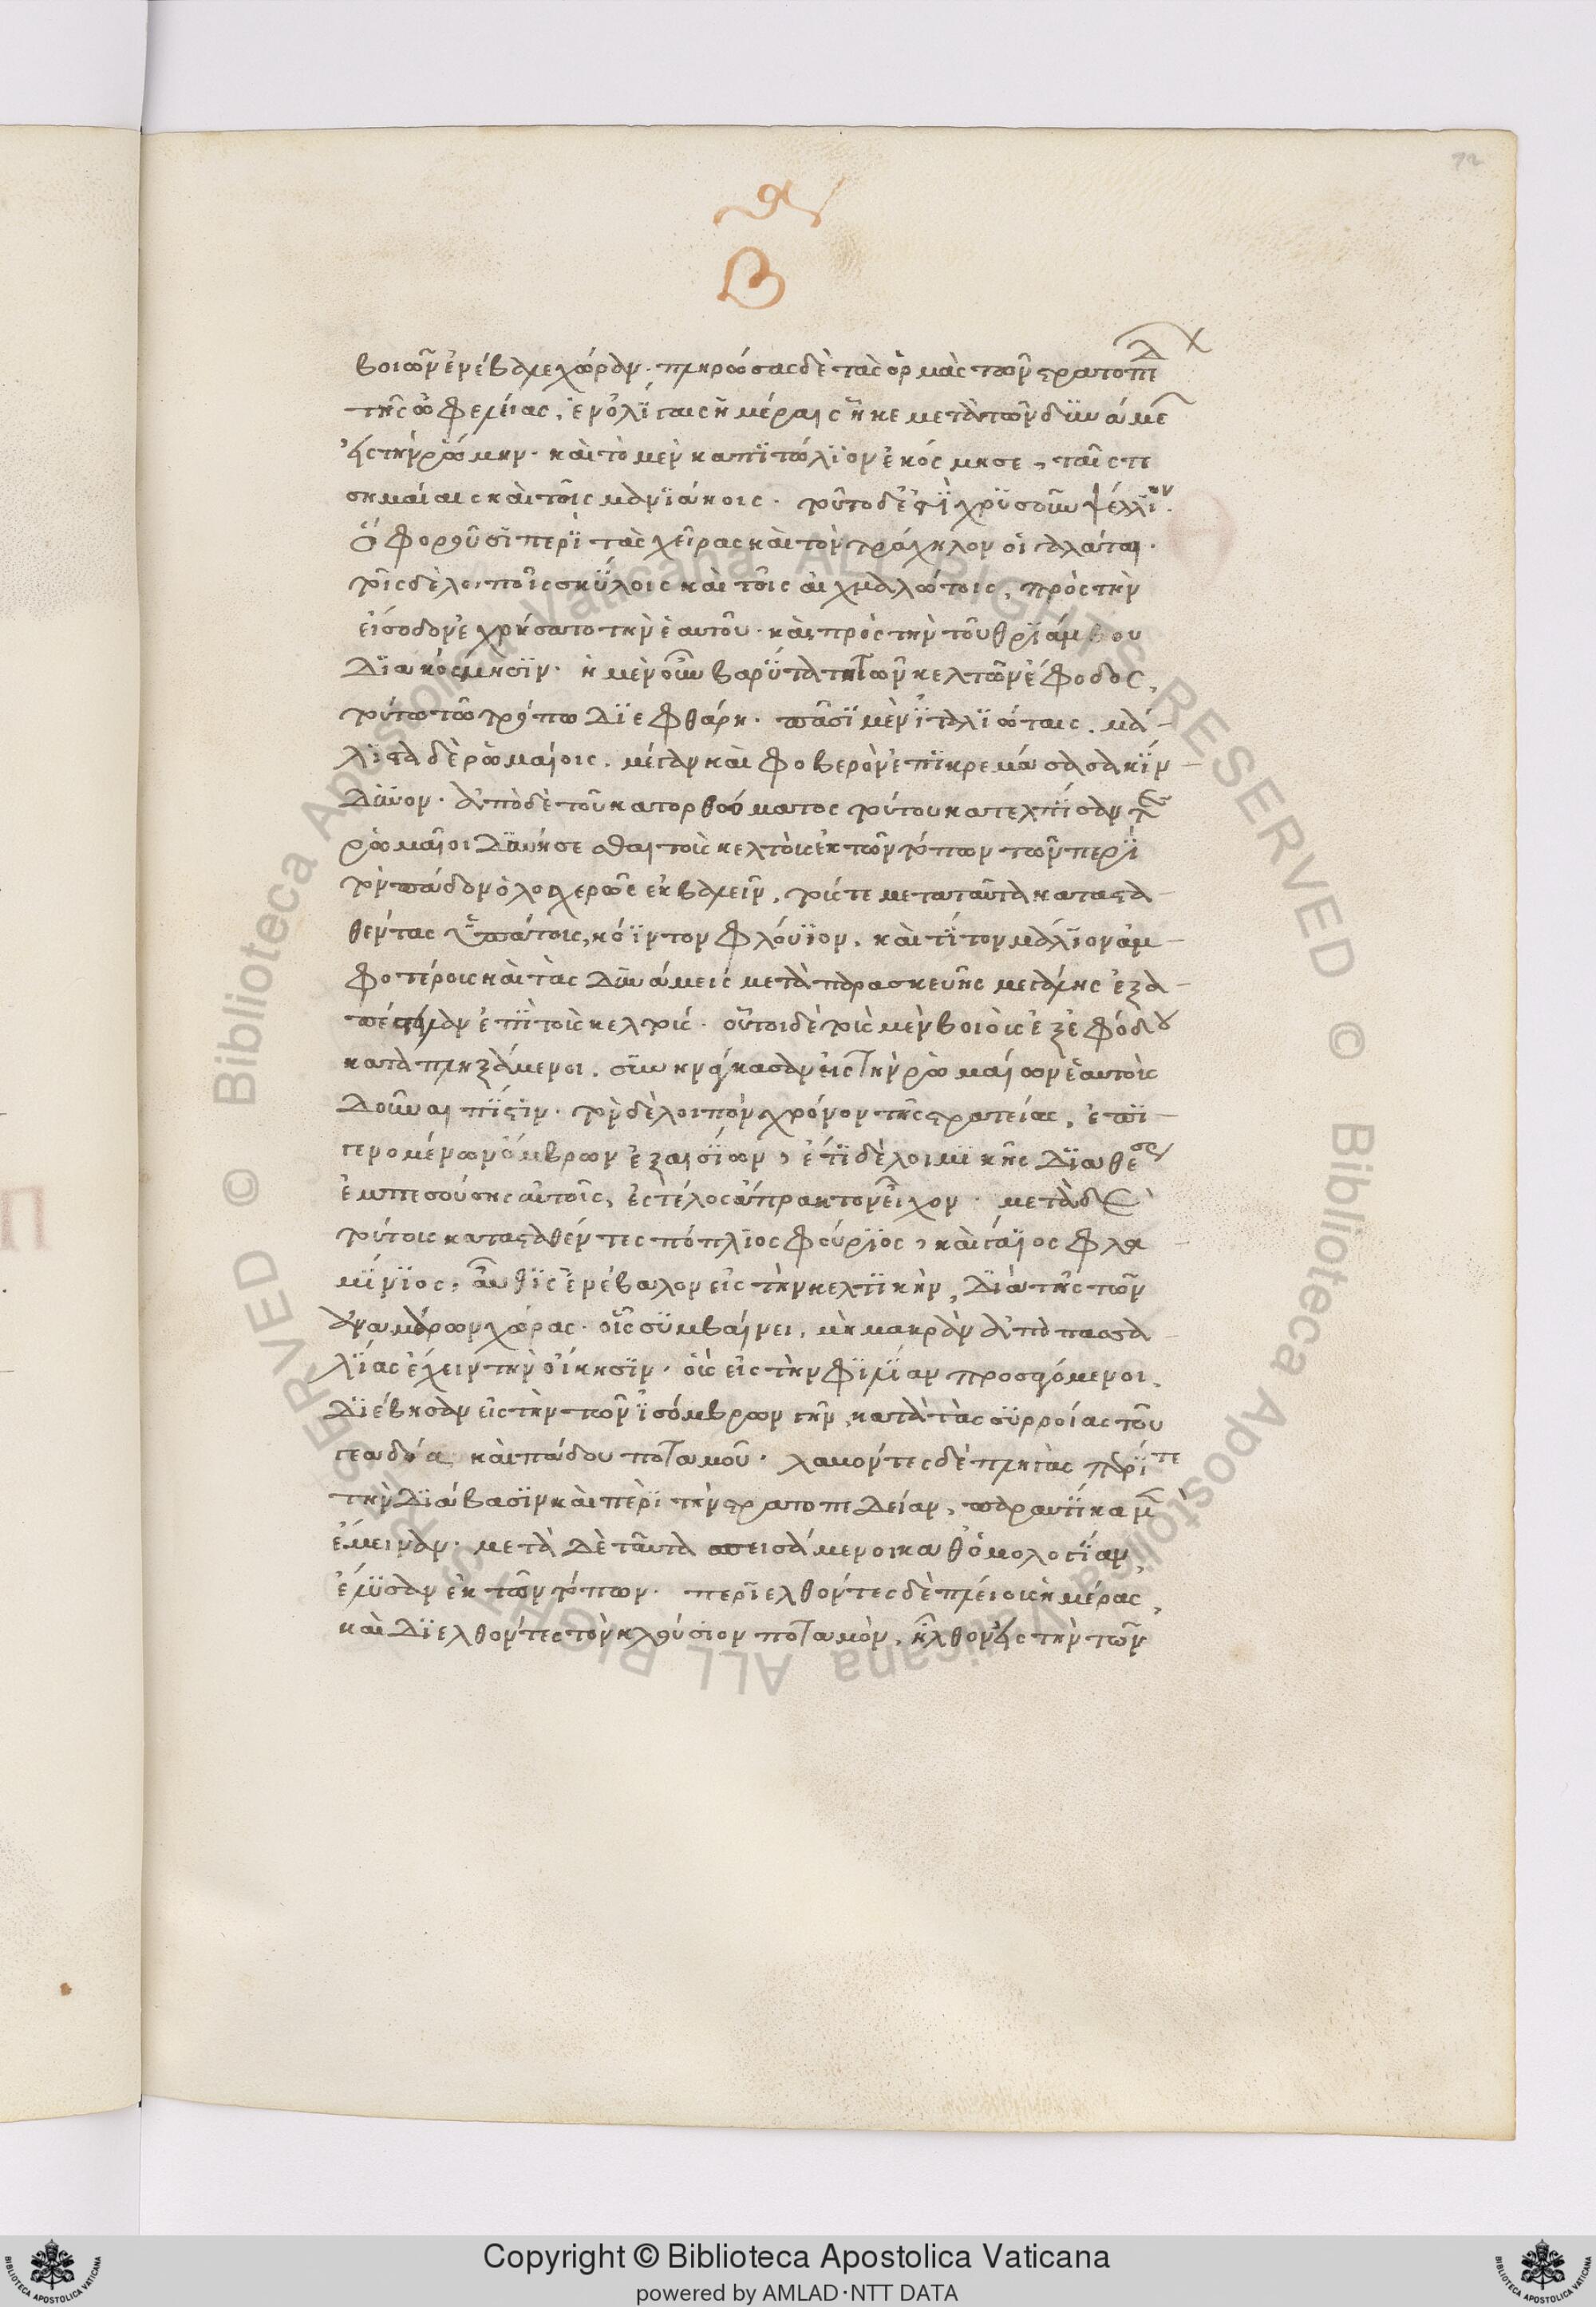 72
Β
βοιῶν ἐνέβαλε χώραν· πληρώσας δὲ τὰς ὁρμὰς τῶν στρατοπεδ
τῆς ὠφελείας, ἐν ὀλίγαις ἡμέραις ἧκε μετὰ τῶν δυνάμε
εἰς τὴν ῥώμην· καὶ τὸ μὲν καπιτώλιον ἐκόσμησε, ταῖς τε
σημαίαις καὶ τοῖς μανϊάκοις· τοῦτο δ' ἐστὶ χρυσοῦν ψέλλιον
ὃ φοροῦσι περὶ τὰς χεῖρας καὶ τὸν τράχηλον οἱ γαλάται·
τοῖς δὲ λοιποῖς σκύλοις καὶ τοῖς αἰχμαλώτοις, πρὸς τὴν
εἴσοδον ἐχρήσατο τὴν ἑαυτοῦ· καὶ πρὸς τὴν τοῦ θριάμβου
διακόσμησιν· ἡ μὲν οὖν βαρυτάτη τῶν κελτῶν ἔφοδος,
τούτω τῶ τρόπω διεφθάρη· πᾶσι μὲν ἰταλιώταις. μά-
λιστα δὲ ῥωμαίοις. μέγαν καὶ φοβερὸν ἐπικρεμάσασα κίν-
δυνον· ἀπὸ δὲ τοῦ κατορθώματος τούτου κατελπίσαντες
ῥωμαῖοι δυνήσεσθαι τοὺς κελτοὺς ἐκ τῶν τόπων τῶν περὶ
τὸν πάδον ὁλοσχερῶς ἐκβαλεῖν, τούς τε μετὰ ταῦτα καταστα-
θέντας ὑπάτους, κόϊντον φλούϊον, καὶ τίτον μάλιον ἀμ-
φοτέρους καὶ τὰς δυνάμεις μετὰ παρασκευῆς μεγάλης ἐξα-
πέστειλαν ἐπὶ τοὺς κελτούς· οὗτοι δὲ τοὺς μὲν βοιοὺς ἐξ ἐφόδου
καταπληξάμενοι. συνηνάγκασαν εἰς τὴν ῥωμαίων ἑαυτοὺς
δοῦναι πίστιν· τὸν δὲ λοιπὸν χρόνον τῆς στρατείας, ἐπι-
γενομένων ὄμβρων ἐξαισίων, ἔτι δὲ λοιμικῆς διαθέσεως
ἐμπεσούσης αὐτοῖς, εἰς τέλος ἄπρακτον εἶχον· μετὰ δὲ
τούτους κατασταθέντες πόπλιος φούριος, καὶ γάϊος φλα-
μίνιος, αὖθις ἐνέβαλον εἰς τὴν κελτικὴν, διὰ τῆς τῶν
ἀναμάρων χώρας· οἷς συμβαίνει, μὴ μακρὰν ἀπὸ πασσα-
λίας ἔχειν τὴν οἴκησιν· οὓς εἰς τὴν φιλίαν προσαγόμενοι.
διέβησαν εἰς τὴν τῶν ἰσόμβρων γῆν, κατὰ τὰς συρροίας τοῦ
τε αδόα καὶ πάδου ποταμοῦ· λαμόντες δὲ πληγὰς περί τε
τὴν διάβασιν καὶ περὶ τὴν στρατοπεδείαν, παραυτίκα μὲν
ἔμειναν· μετὰ δὲ ταῦτα σπεισάμενοι καθ' ὁμολογίαν
ἔλυσαν ἐκ τῶν τόπων· περιελθόντες δὲ πλείους ἡμέρας,
καὶ διελθόντες τὸν κλούσιον ποταμὸν, ἦλθον εἰς τὴν τῶν
Copyright © Biblioteca Apostolica Vaticana
powered by AMLAD·NTT DATA